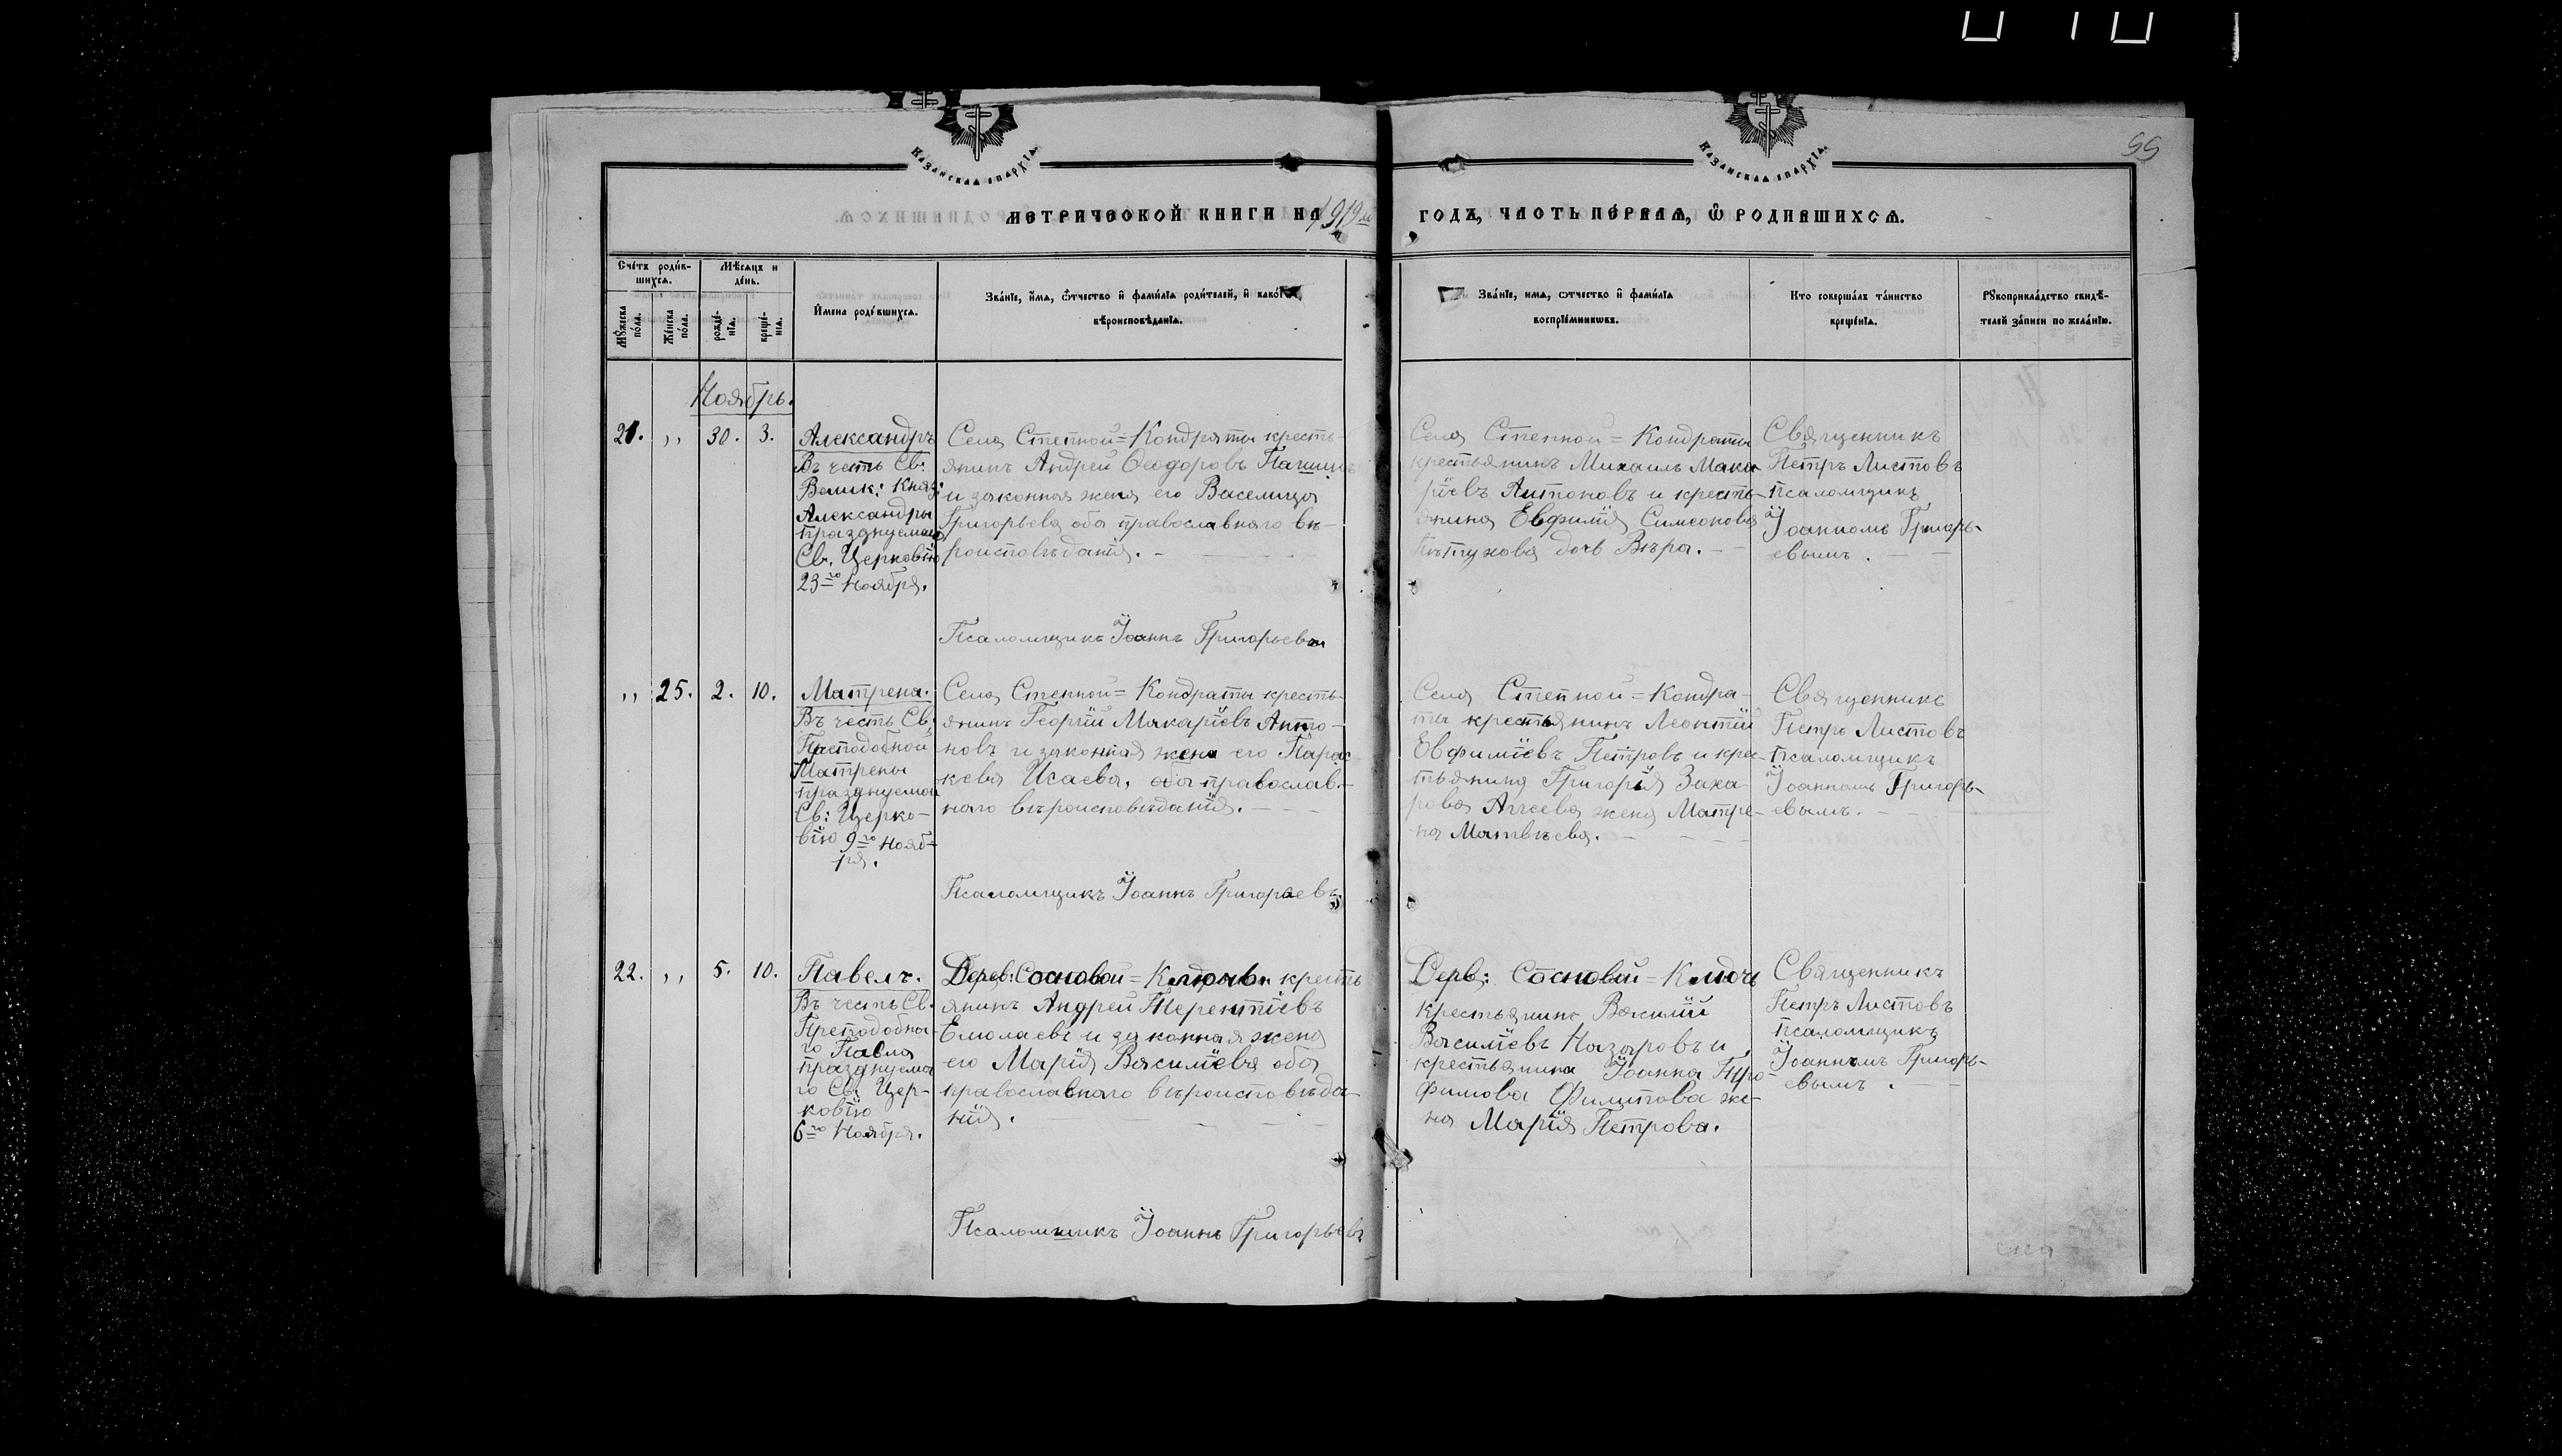 Казанская епархія.
Казанская епархія.
55
МЕТРИЧЕСКОЙ КНИГИ НА 1919 й
ГОДЪ, ЧАСТЬ ПЕРВАЯ, Ѿ РОДИВШИХСѦ.
Счётъ родив-
шихся.
Мѣсяцъ и
день.
Мꙋжеска
пола.
Женска
пола.
рожде-
нія.
креще-
нія.
Имена родившихся.
Званіе, имя, ѿтчество и фамилія родителей, и какого
вѣроисповѣданія.
Званіе, имя, отчество и фамилія
воспріемниковъ.
Кто совершалъ таинство
крещенія.
Рꙋкоприкладство свидѣ-
телей записи по желанію.
Ноябрь.
21. ,, 30. 3.
Александръ
Въ честь Св:
Велик: Княз:
Александры
празднуемаго
Св. Церковію
23го Ноября.
Села Степной=Кондраты кресть-
янинъ Андрей Ѳеодоровъ
и законная жена его Васелиса
Григорьева оба православнаго вѣ-
роисповѣданія. -
Псаломщикъ Іоаннъ Григорьевъ
Села Степной=Кондраты
крестьянинъ Михаилъ Мака
ріевъ Антоновъ и кресть-
янина Евфимія Симеонова
Пѣтухова дочь Вѣра. -
Священникъ
Петръ Листовъ
псаломщикъ
Іоанномъ Григорь-
евымъ.
,, 25. 2. 10.
Матрена.
Въ честь Св.
Преподобной
Матрены
празднуемой
Св: Церко-
вію 9го Нояб-
ря.
Села Степной=Кондраты кресть-
янинъ Георгій Макаріевъ Анто-
новъ и законная жена его Парас
кева Исаева, оба православ-
наго вѣроисповѣданія. -
Псаломщикъ Іоаннъ Григорьевъ
Села Степной=Кондра-
ты крестьянинъ Леонтій
Евфиміевъ Петровъ и крес-
тьянина Григорія Заха
рова Агеева жена Матре-
на Матвѣева. -
Священникъ
Петръ Листовъ
псаломщикъ
Іоанномъ Григорь-
евымъ. -
22. ,, 5. 10.
Павелъ.
Въ честь Св.
Преподобна-
го Павла
празднуема
го Св: Цер-
ковію
6го Ноября.
Дерев: Сосновой= кресть
янинъ Андрей Терентіевъ
Ермолаевъ и законная жена
его Марія Василіева оба
православнаго вѣроисповѣда-
нія.
Псаломщикъ Іоаннъ Григорьевъ
Дерв: Сосновый=Ключъ
крестьянинъ Василій
Василіевъ Назаровъ и
крестьянина Іоанна Тро
фимова Филипова же-
на Марія Петрова.
Священникъ
Петръ Листовъ
псаломщикъ
Іоанномъ Григорь-
евымъ.